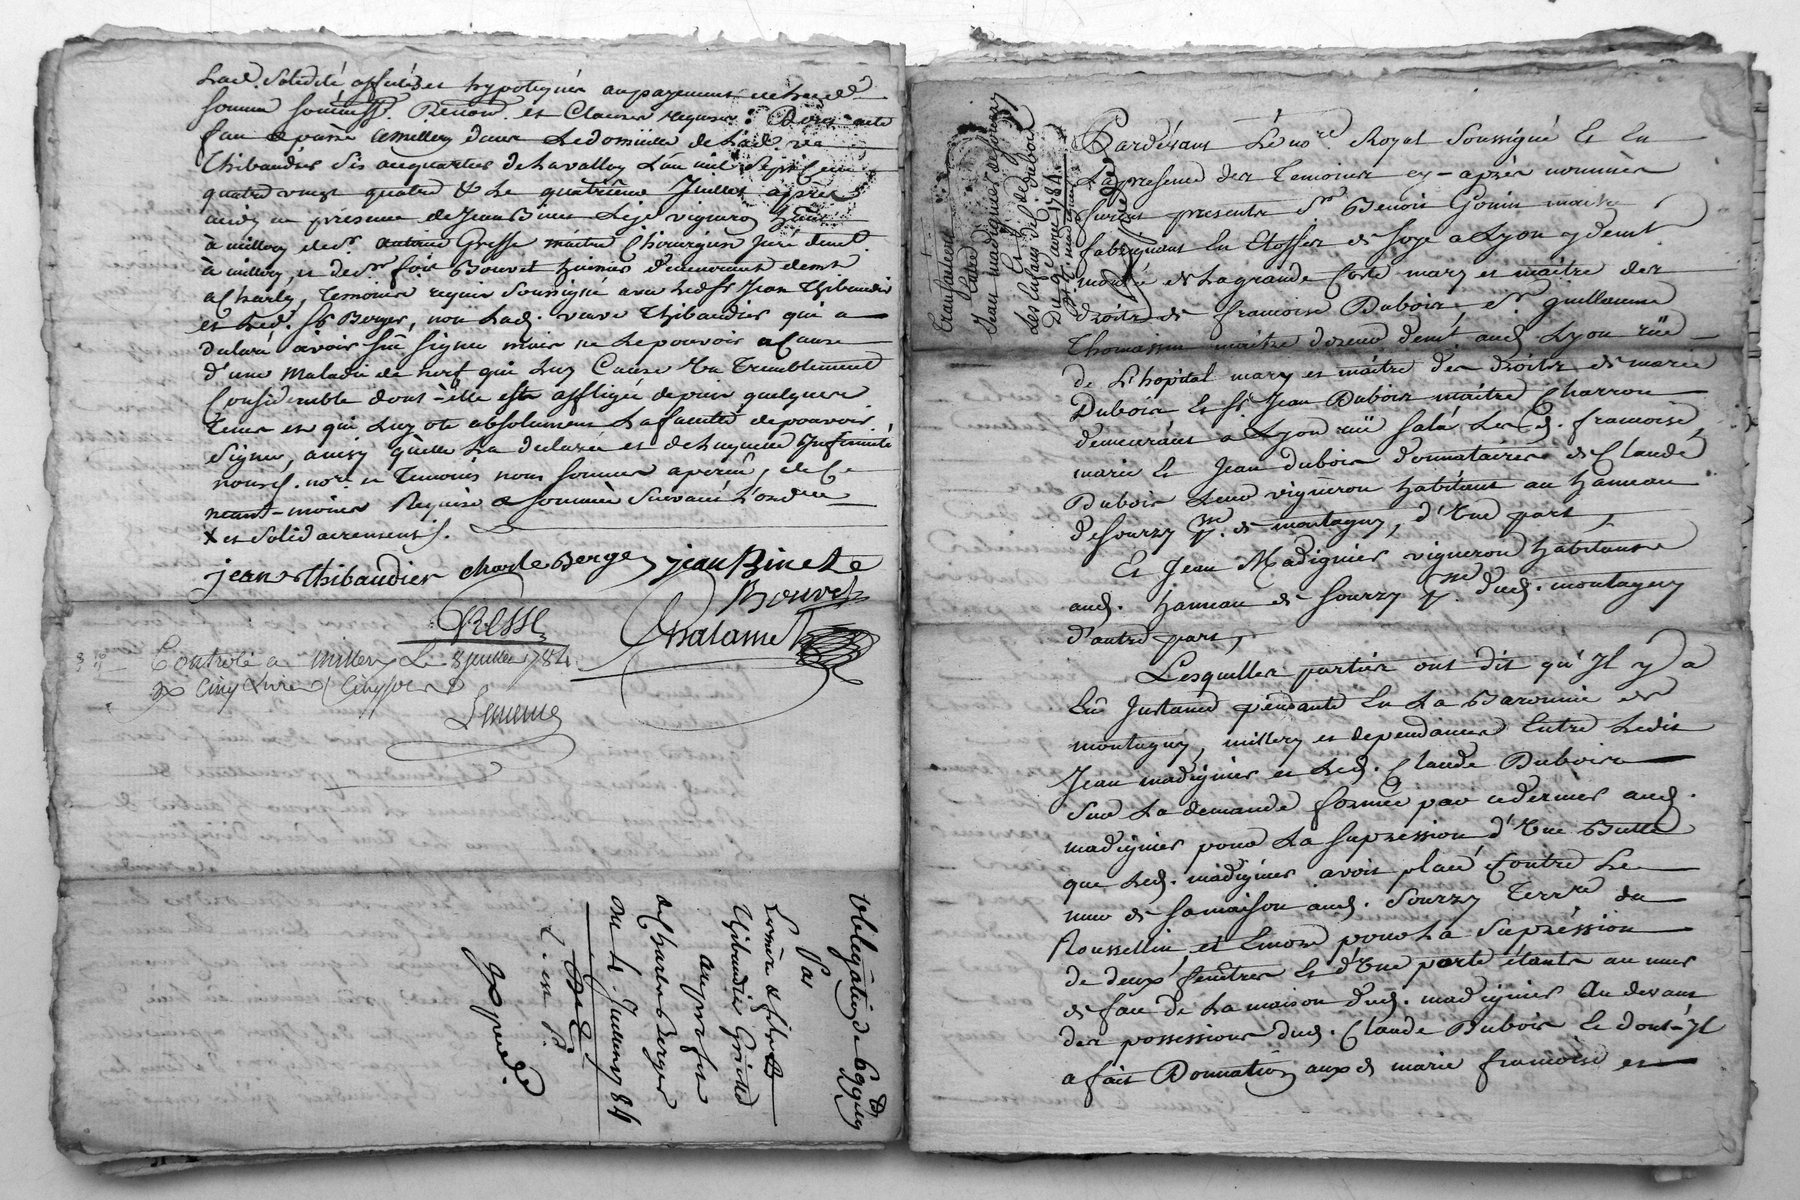 Lad. Solidité affectés et hypotéqués au payement de lad.
somme soumiss. Renon. et Clauses requises : Dont acte
fait & passé a Millery dans Le domicile de Lad. ve
Thibaudier sis au quartier de Lavalloy L'an mil Sept Cent
quatre vingt quatre & Le quatrième Juillet après
midy en présence de Jean Binet Lejeº vigneron
à millery de Sr. antoine Gresse maitre Chirurgien juré demt.
à millery, et de Sr. Bouvet huissier demeurant
a Charly, Temoins requis soussignés avec Led. Sr Jean Thibaudier
et Led. Sr Berger, non Lad. veuve Thibaudier qui a
declaré avoir sçu signer mais ne Le pouvoir a Cause
d'une maladie de nerf qui Luy Cause Un Tremblement
Considerable dont-elle est affligée depuis quelques
tems et qui Luy ote absolument La faculté de pouvoir
signer, ainsy qu'elle L'a declaré et de laquelle Infirmité
nousd. nore. et Temoins nous sommes aperçus, de Ce
neant-moins Requise & sommée Suivant L'ordce
X et Solidairement.
jean thibaudier charle Berger jean Binet Le
Bouvet
GRESSE
Chalamel
Controlé a millery Le 8 juillet 1784
Cinq Livres Cinq sous
Obligation de
Par
La mère & fils
Thibaudier
au profit
de Charles Berger
Du 4 Juillet 84
Expedé.
Transaction
Entre
Jean madignier de Sourzy
Et
Les Enfans de Claude Dubois
Du 9 avril 1784
Pardevant Le nore. Royal Soussigné Et En
La presence des Temoins cy-après nommés
furent presents Sr. Benoit Gonin maitre
fabriquant En Etoffes de soye a Lyon y demt.
montée de La grande Coste mary et maitre des
droits de françoise Dubois, Sr. guillaume
Thomassin maitre demt. aud. Lyon rüe
de L'hôpital mary et maitre des droits de marie
Dubois Et Sr. Jean Dubois maitre Charron
demeurant a Lyon rüe Sala, Lesd. françoise,
marie Et Jean dubois donnataires de Claude
Dubois Leur vigneron habitant au hameau
de Sourzy psse. de montagny, d'Une part,
Et Jean Madignier vigneron habitant
aud. hameau de Sourzy psse. dud. montagny
d'autre part,
Lesquelles parties ont dit qu'Il y a
Eû Instance pendante En La Baronnie de
montagny, millery et dependances Entre Ledit
Jean madignier et Led. Claude Dubois
Sur La demande formée par ce dernier aud.
madignier pour La supression d'Une Butte
que Led. madignier avoit placé Contre Le
mur de sa maison aud. Sourzy Terrre du
Rousselin, et Encore pour La Supression
de deux fenêtres Et d'Une porte étants au mur
de face de La maison dud. madignier au devant
des possessions dud. Claude Dubois Et dont-Il
a fait Donnation auxd. marie françoise et